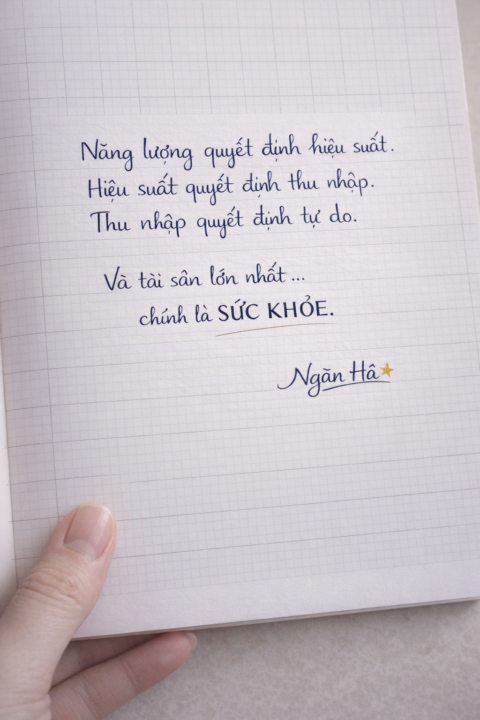 Năng lượng quyết định hiệu suất.
Hiệu suất quyết định thu nhập.
Thu nhập quyết định tự do.
Và tài sân lớn nhất...
chính là SỨC KHỎE.
Ngăn Hâ